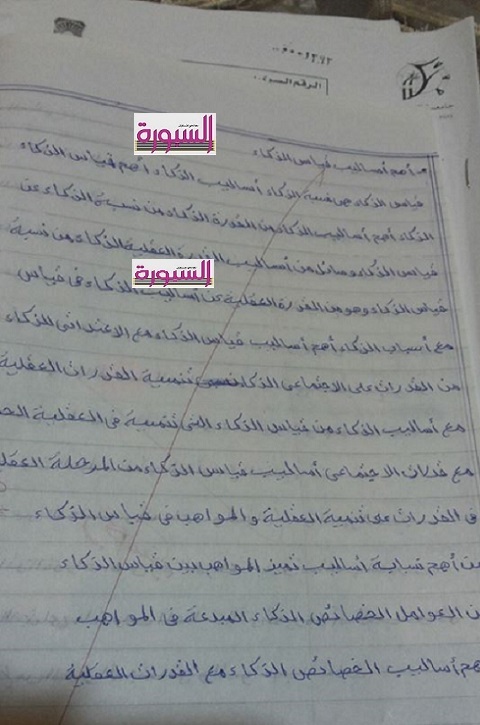 الرقم السرى
السبورة
- أهم أساليب قياس الذكاء
قياس الذكاء هى نسبة الذكاء أساليب الذكاء أهم قياس الذكاء
الذكاء أهم أساليب الذكاء من القدرة الذكاء من نسبة الذكاء عن
قياس الذكاء وسائل من أساليب العقلية الذكاء من نسبة
السبورة
قياس الذكاء وهو من القدرة العقلية عن أساليب الذكاء فى قياس
مع أسباب الذكاء أهم أساليب قياس الذكاء مع الاعتدائى للذكاء
من القدرات على الاجتماعى الذكاء تنمية القدرات العقلية
مع أساليب الذكاء من قياس الذكاء التى تنمية فى العقلية
مع الاجتماعى أساليب قياس الذكاء من المرحلة
فى القدرات على تنمية العقلية والمواهب فى قياس الذكاء
من أهم أساليب تميز المواهب بين قياس الذكاء
العوامل الخصائص الذكاء المبدعة فى المواهب
أساليب الخصائص الذكاء مع القدرات العقلية